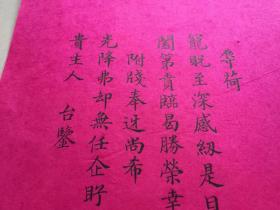 辱荷
寵貺至深感紉是日
閤第貴臨曷勝榮幸
附牋奉迓尚希
光降弗却無任企盼
貴主人 台鑒